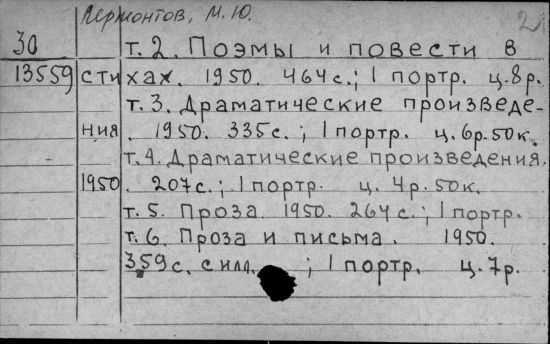 Лермонтов, М. Ю.
2
30 т. 2. Поэмы и повести в
13559 стихах. 1950. 464с.; 1 портр. ц. 8р.
т. 3. Драматические произведе-
ния. 1950. 335с.; 1 портр. ц. 6р. 50к.
т. 4. Драматические произведения.
1950. 207с.; 1 портр. ц. 4р. 50к.
т. 5. Проза. 1950. 264с.; 1 портр.
т. 6. Проза и письма. 1950.
359с. с илл. ; 1 портр. ц. 7р.